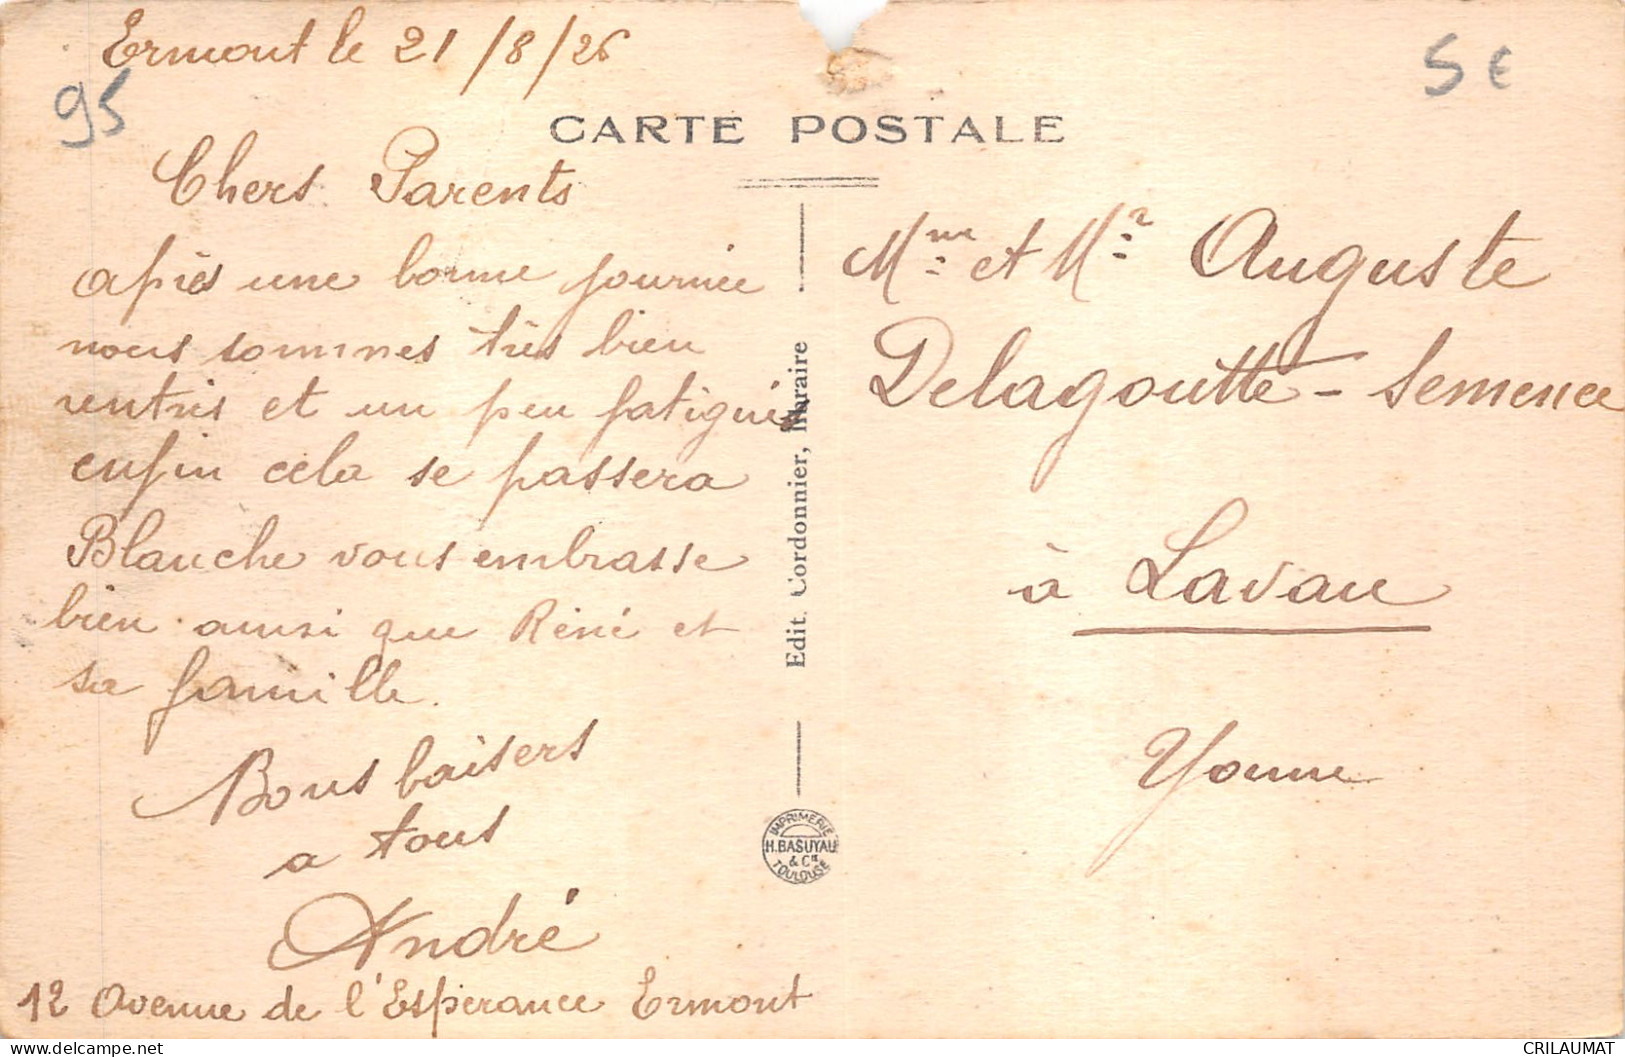 Ermont le 21/8/26
95
5 €
CARTE POSTALE
Chers Parents
après une bonne journée
nous sommes très bien
rentrés et un peu fatigués
enfin cela se passera
Blanche vous embrasse
bien ainsi que Réné et
sa famille.
Bons baisers
a tous
André
12 Avenue de l'Espérance Ermont
Edit. Cordonnier, libraire
IMPRIMERIE
H. BASUYAU
& Cie
TOULOUSE
Mme et Mr Auguste
Delagoutte - Semence
à Lavau
Yonne
delcampe.net
CRILAUMAT